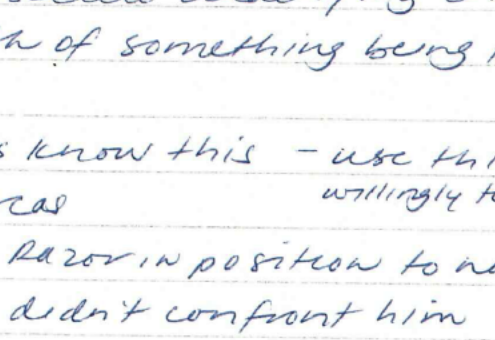 of something being
know this - use thi
willingly to
cas
Razor in position to
didn't confront him